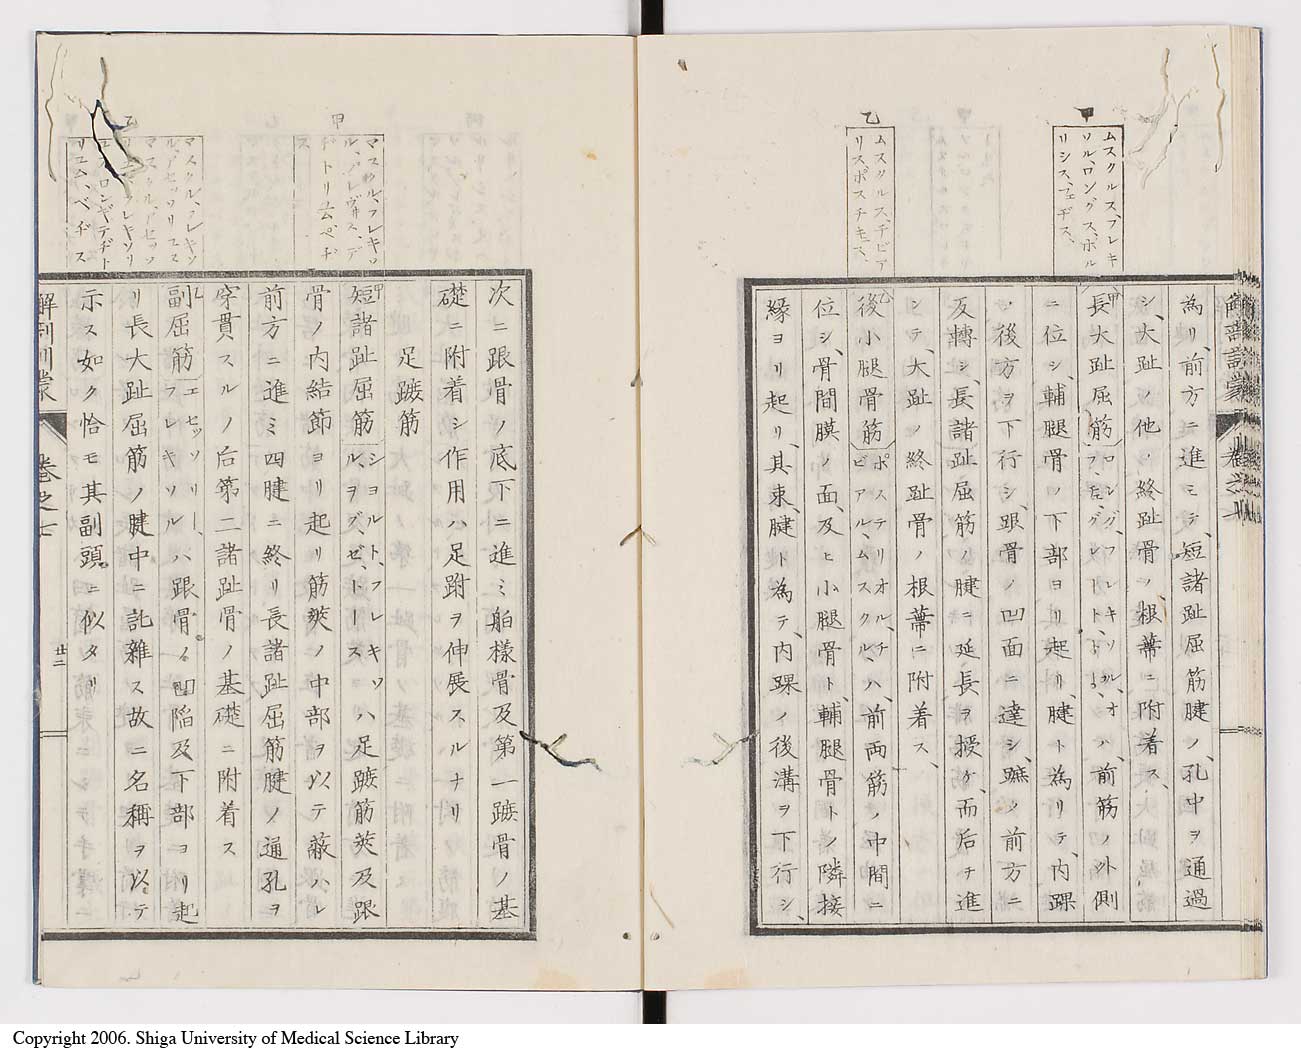 ムスクルス、フレキ
ソル、ロングス、ポル
リシス、ペヂス、
為リ、前方ニ進ミテ、短諸趾屈筋腱ノ、孔中ヲ通過
シ、大趾ノ他ノ、終趾骨ノ、根蔕ニ附ノ着ス、
長大趾屈筋
ハ、前筋ノ外側
ニ位シ、輔腿骨ノ下部ヨリ起リ、腱ト為リテ、内踝
ノ後方ヲ下行シ、跟骨ノ凹面ニ達シ、
前方ニ
反轉シ、長諸趾屈筋ノ腱ニ延長ヲ授ケ、而后チ進
シテ、大趾ノ終趾骨ノ根蔕ニ附着ス、
乙
ムスクルス、チビア
リス、ポスチキス、
後小腿骨筋
ポステリオル、チ
ビアル、ムスクル、
ハ、前両筋ノ中間ニ
位シ、骨間膜ノ面、及ヒ小腿骨ト、輔腿骨トノ隣接
縁ヨリ起リ、其束、腱ト為テ、内踝ノ後溝ヲ下行シ、
次ニ跟骨ノ底下ニ進ミ舶様骨及第一蹠骨ノ基
礎ニ附着シ作用ハ足跗ヲ伸展スルナリ
足蹠筋
甲
マスクル、フレキソ
ル、ブレヴィス、デ
ヂトリュム、ペヂ
ス
短諸趾屈筋
ショルト、フレキソ
ル、ヲブ、ゼ、トース
ハ足蹠筋莢及跟
骨ノ内結節ヨリ起リ筋莢ノ中部ヲ以テ蔽ハレ
前方ニ進ミ四腱ニ終リ長諸趾屈筋腱ノ通孔ヲ
穿貫スルノ后第二諸趾骨ノ基礎ニ附着ス
乙
マスクル、フレキソ
ル、アセッソリユス
マスクル、アセッソ
副屈筋
エセッソリー、
フレキソル
ハ跟骨ノ凹陥及下部ヨリ起
リ長大趾屈筋ノ腱中ニ託雜ス故ニ名稱ヲ以テ
示ス如ク恰モ其副頭ニ似タリ
巻之七
廿二
Copyright 2006. Shiga University of Medical Science Library